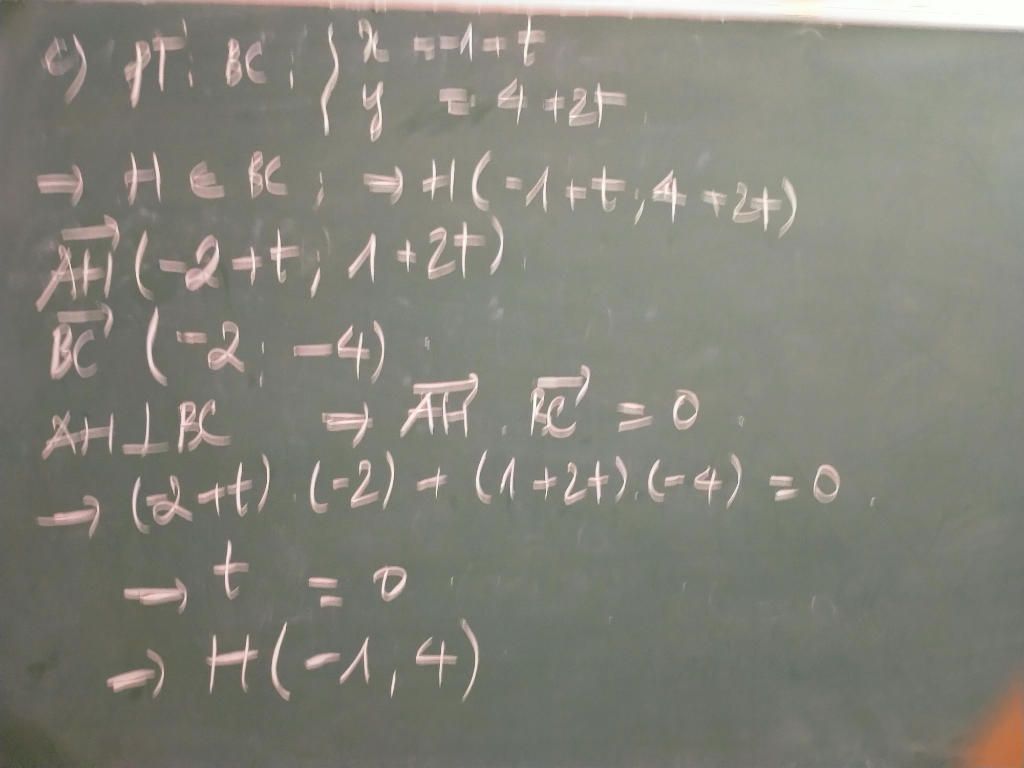 c) PT: BC: { x = -1 + t
y = 4 + 2t
→ H ∈ BC; → H(-1 + t; 4 + 2t)
$\overrightarrow{AH}$ (-2 + t; 1 + 2t)
$\overrightarrow{BC}$ (-2; -4)
AH ⊥ BC → $\overrightarrow{AH}$ . $\overrightarrow{BC}$ = 0
→ (-2 + t) . (-2) + (1 + 2t) . (-4) = 0
→ t = 0
→ H(-1, 4)